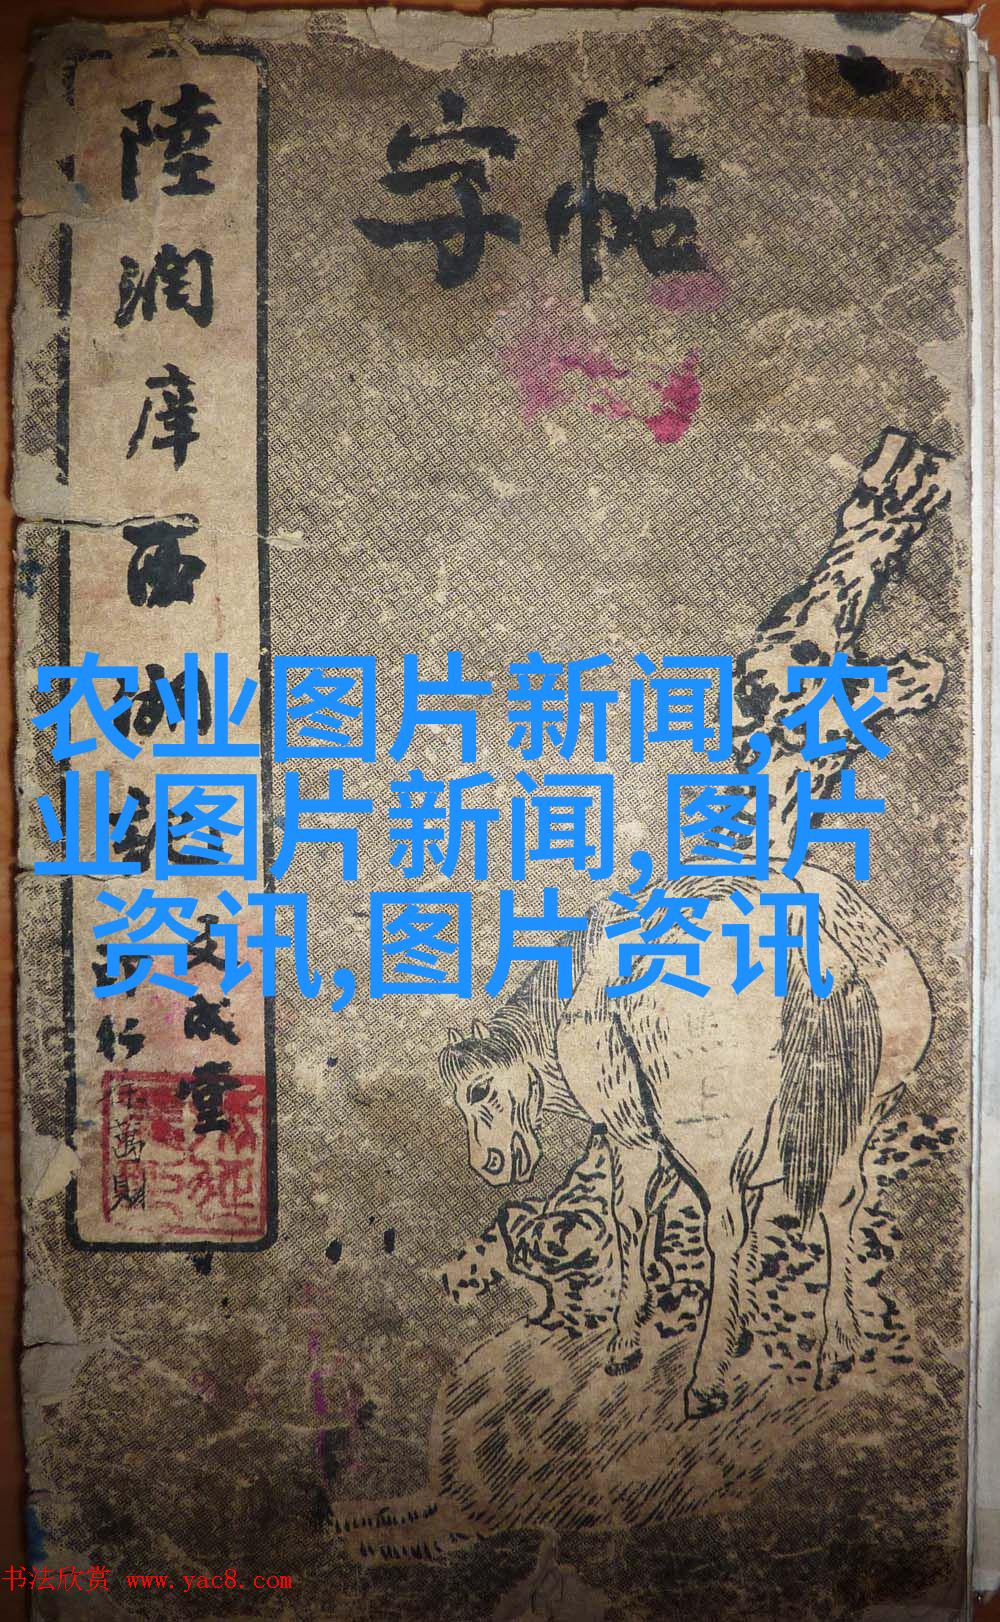 字帖
陸潤庠西湖
文成堂
萬財
农业图片新闻,农
业图片新闻,图片
资讯,图片资讯
书法欣赏 www.yac8.com